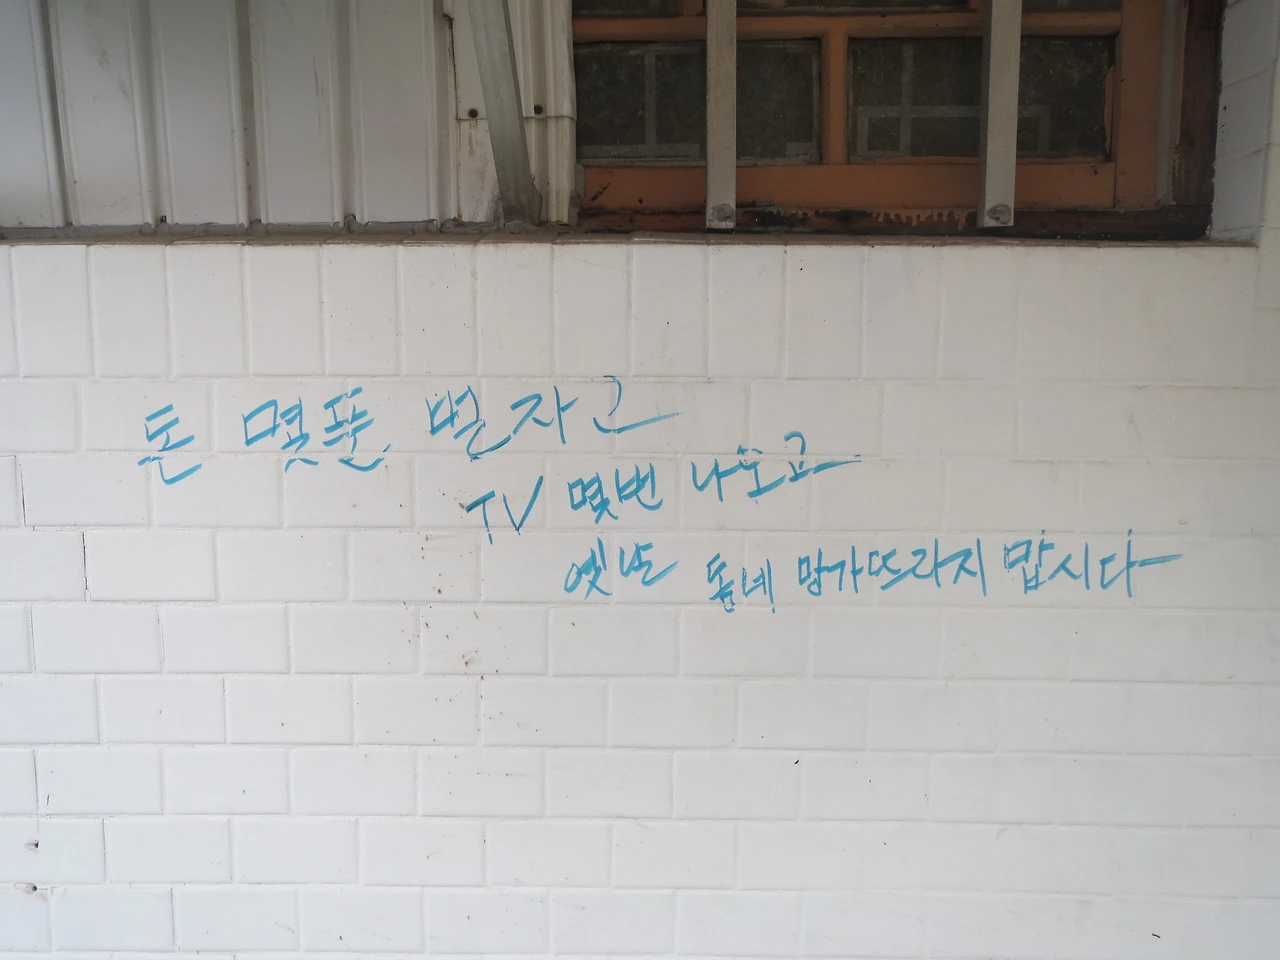 돈 몇푼 벌자고
TV 몇번 나오고
옛날 동네 망가뜨리지 맙시다